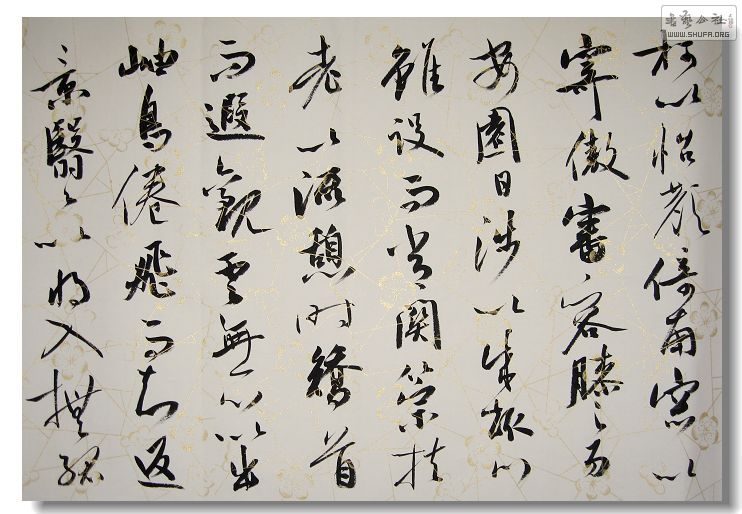 柯以怡顏倚南窗以
寄傲審容膝之易
安園日涉以成趣門
雖設而常關策扶
老以流憩時矯首
而遐觀雲無心以出
岫鳥倦飛而知返
景翳翳以將入撫孤
書藝公社
WWW.SHUFA.ORG